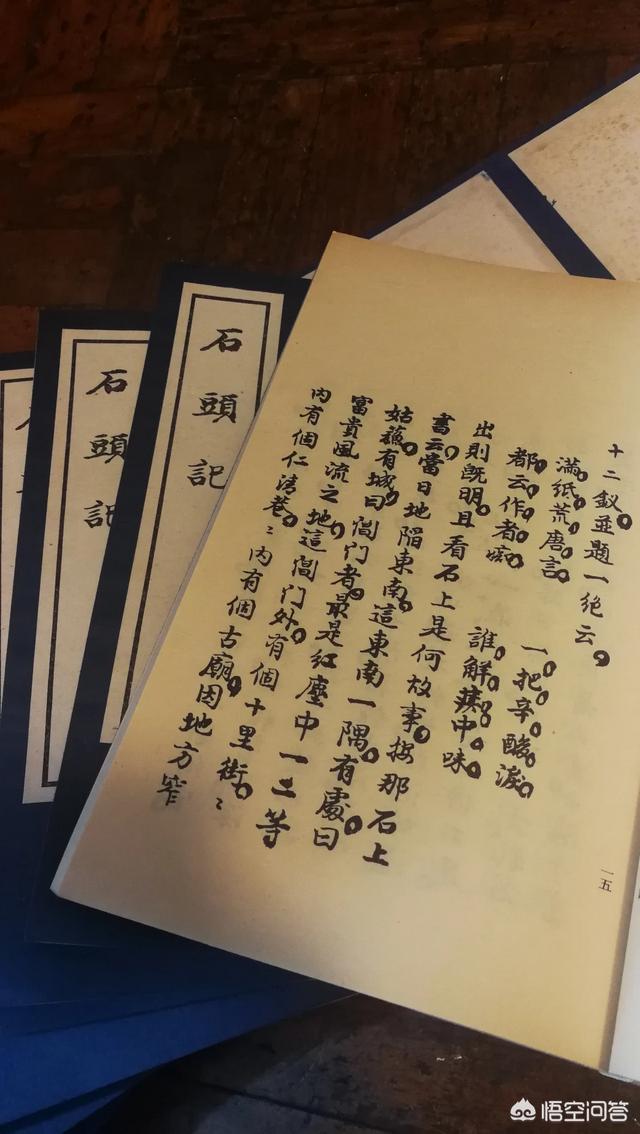 石頭記
石頭記
十二釵並題一絕云。
滿紙荒唐言。 一把辛酸淚。
都云作者痴。 誰解其中味。
出則既明。且看石上是何故事。按那石上
書云。當日地陷東南。這東南一隅。有處曰
姑蘇。有城曰閶門者。最是紅塵中一二等
富貴風流之地。這閶門外。有個十里街。〻
內有個仁清巷。〻內有個古廟。因地方窄
一五
悟空问答